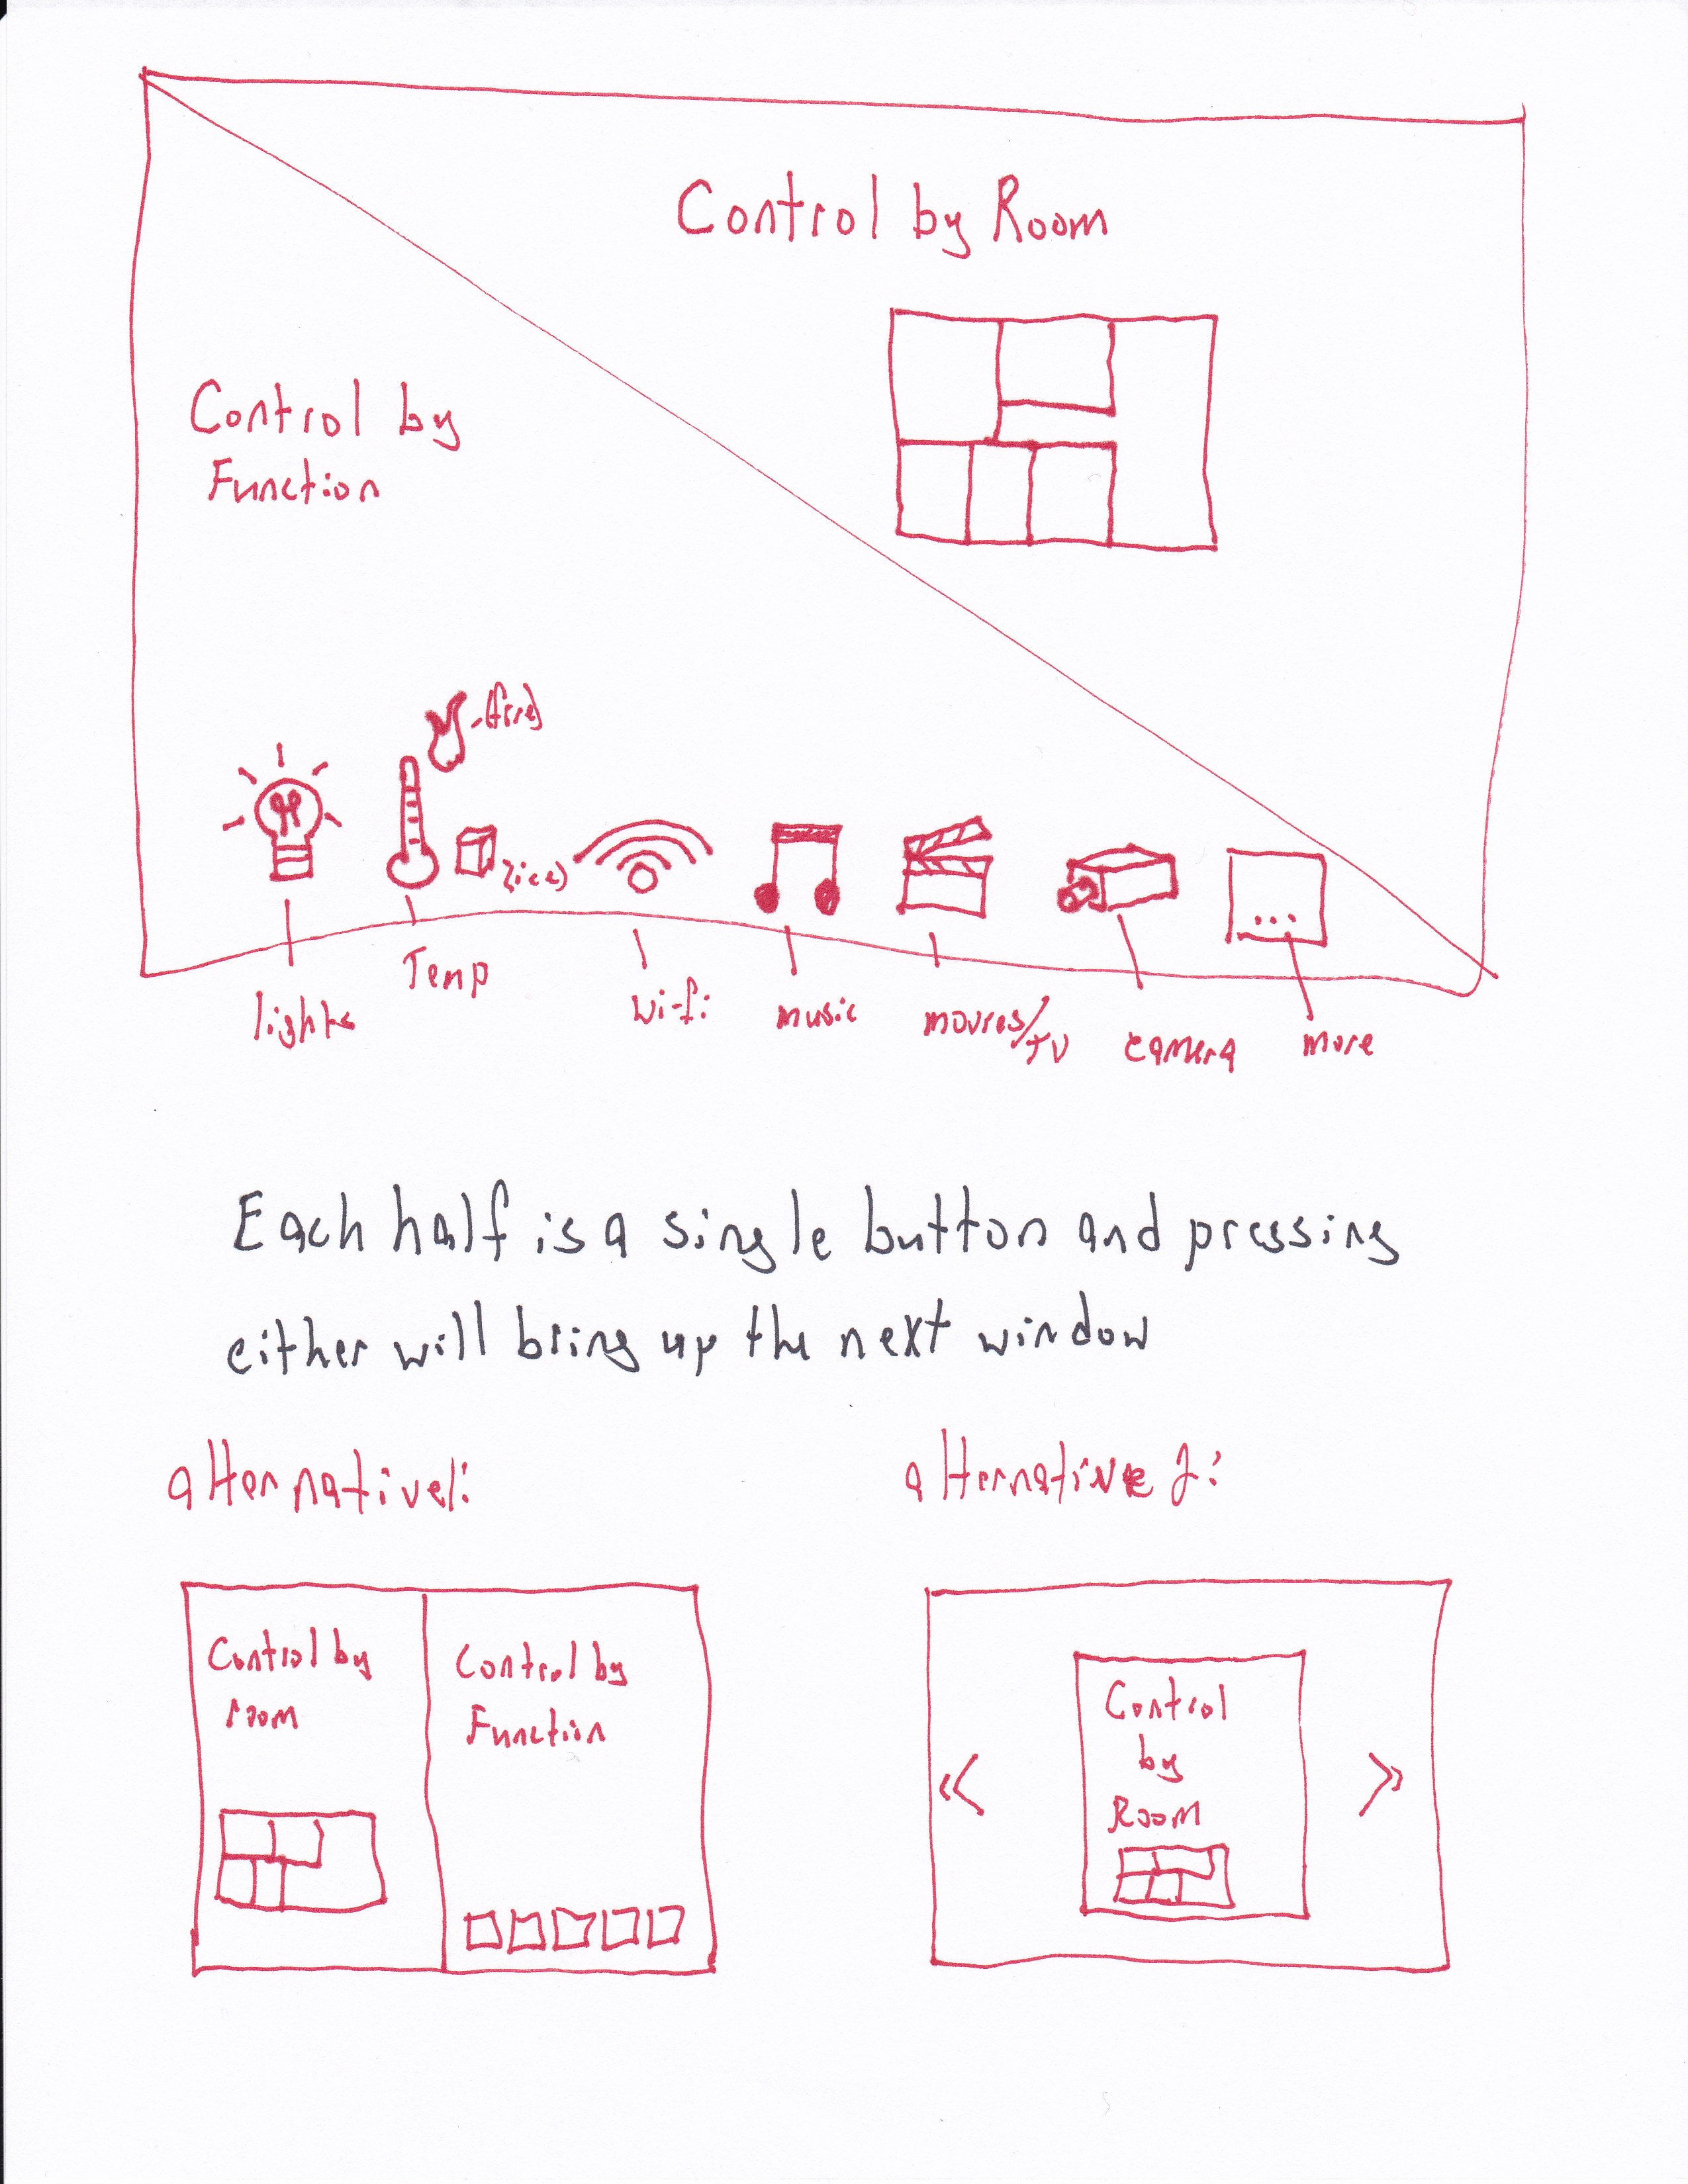 Control by Room
Control by
Function
(fire)
(ice)
lights
Temp
wi-fi
music
movies/
TV
camera
more
Each half is a single button and pressing
either will bring up the next window
alternative1:
alternative 2:
Control by
room
Control by
Function
«
Control
by
Room
»